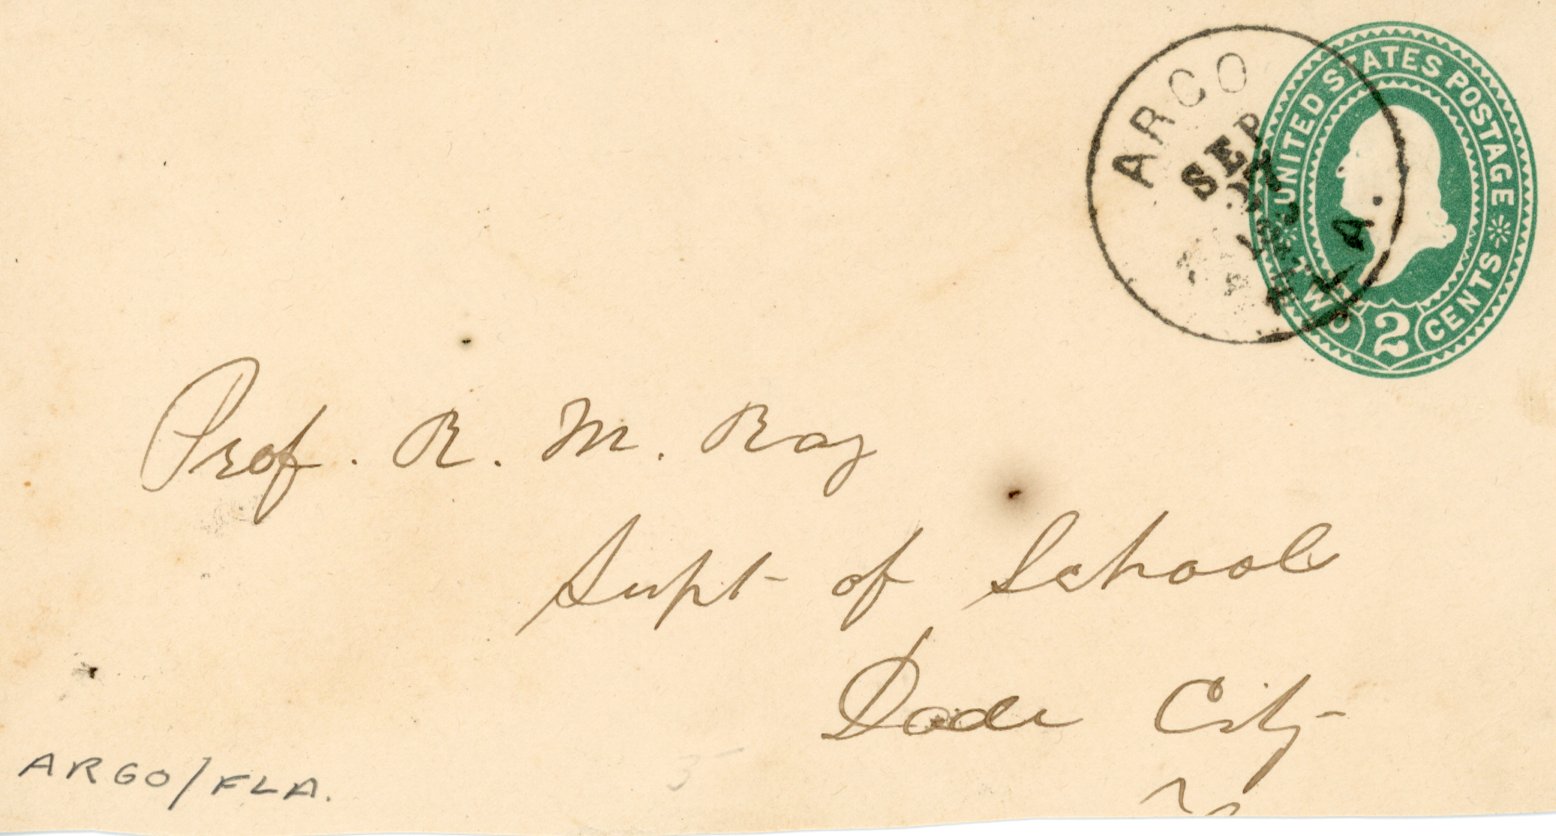 ARGO
SEP
27
FLA.
UNITED STATES POSTAGE
TWO 2 CENTS
Prof. R. M. Ray
Supt of Schools
Dade City
ARGO/FLA.